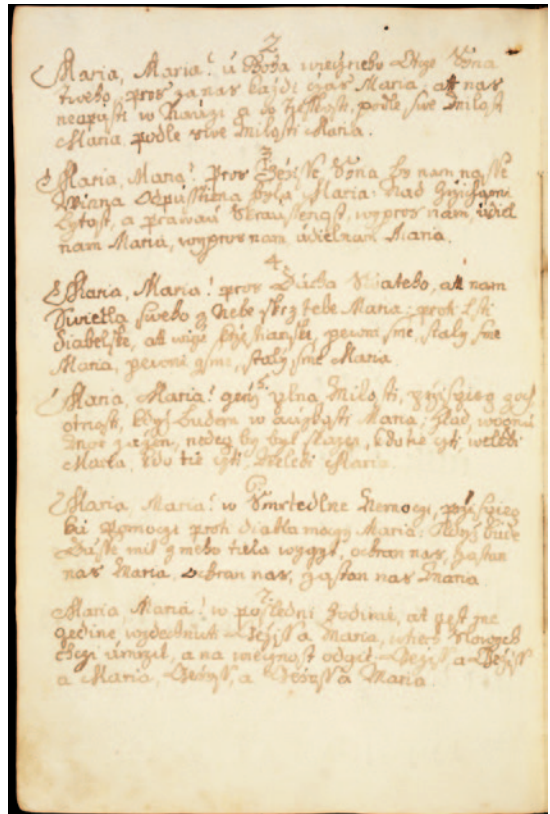 2
Maria, Maria! u Boha wiećzneho Otcze Syna
tweho, pros za nas každi czas Maria, att nas
neopusti w nauzi a w żalosti, podle swe milost
Maria podle swe milosti Maria.
3
Maria, Maria! pros Gežisse, Syna by nam nasse
Wina odpusstiena byla Maria: nad
Lytost, a prawau Skraussenost, wypros nam, udiel
nam Maria, wypros nam udiel nam Maria.
4
Maria, Maria! pros Ducha Swateho, att nam
Swietla sweho z Nebe skrz tebe Maria: proti Lsti
diabelske, att wiże křestianske, pewni sme, staly sme
Maria, pewni gsme, staly sme Maria.
5
Maria, Maria! plna Milosti,
otnosti, kdyż budem w Maria: hlad,
by byl kdo tie cżti, weleb
Maria, kdo tie cżti, Maria.
6
Maria, Maria! w Smrtedlne Nemoczi,
ku pomoczi proti diabla moczy Maria: kdyż bude
Dusse mit z meho tiela wygyt, ochran nas, zastan
nas Maria, ochran nas, zastan nas Maria
7
Maria, Maria! w posledni hodinu, at gest me
gedine wydechnuti Gežiss a Maria,
chczi umřzit, a na wiecznost odgit Gežiss a Gežiss
a Maria, Gežiss, a Gežiss a Maria.